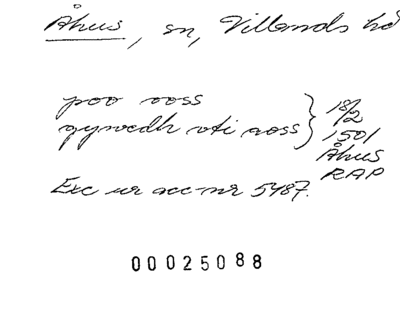 Åhus, sn, Villands hd
poo ooss
gywedh vti aoss } 18/2
1501
Åhus
RAP
Exc ur acc nr 5487.
00025088